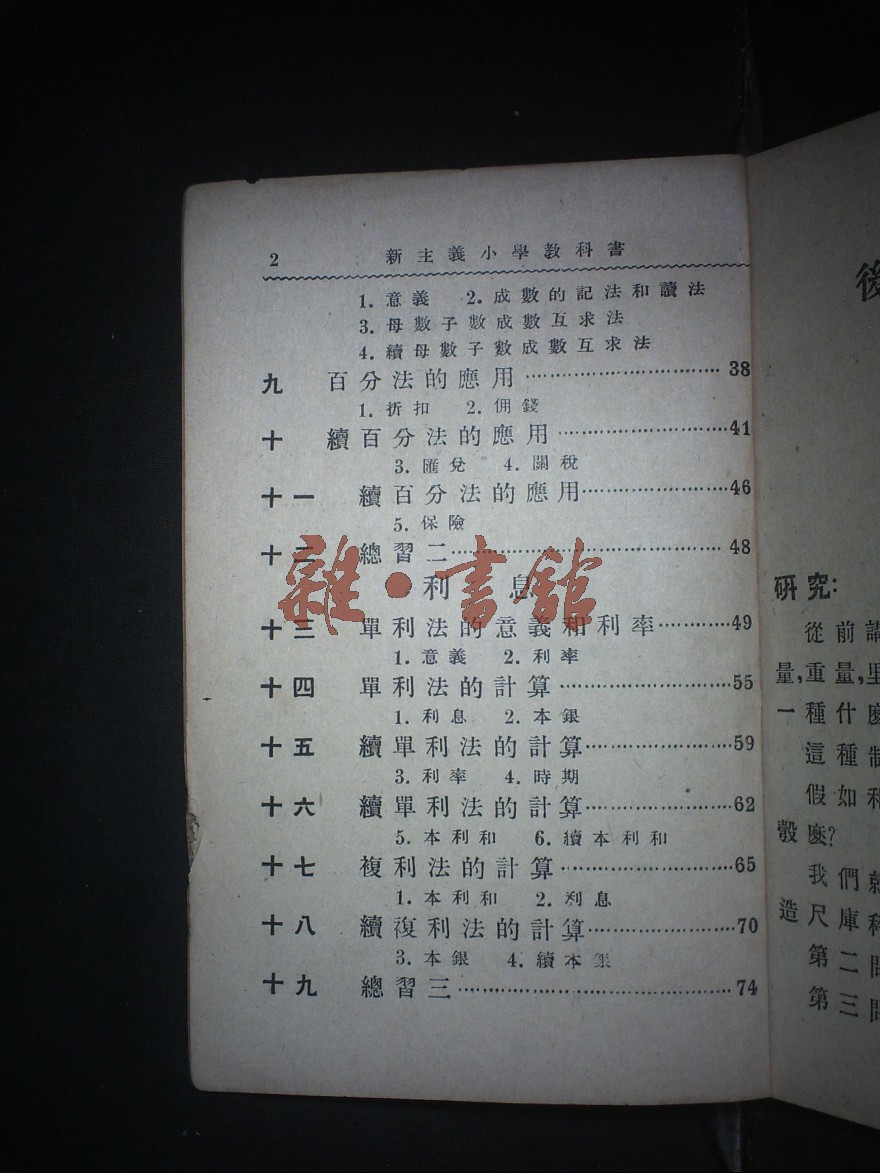 2 新主義小學教科書
1. 意義 2. 成數的記法和讀法
3. 母數子數成數互求法
4. 續母數子數成數互求法
九 百分法的應用 38
1. 折扣 2. 佣錢
十 續百分法的應用 41
3. 匯兌 4. 關稅
十一 續百分法的應用 46
5. 保險
十二 總習二 48
利息
十三 單利法的意義和利率 49
1. 意義 2. 利率
十四 單利法的計算 55
1. 利息 2. 本銀
十五 續單利法的計算 59
3. 利率 4. 時期
十六 續單利法的計算 62
5. 本利和 6. 續本利和
十七 複利法的計算 65
1. 本利和 2. 利息
十八 續複利法的計算 70
3. 本銀 4. 續本銀
十九 總習三 74
雜·書館
後
研究:
從前講
量,重量,里
一種什麼
這種制
假如和
彀麼?
我們就
造尺庫
第二問
第三問